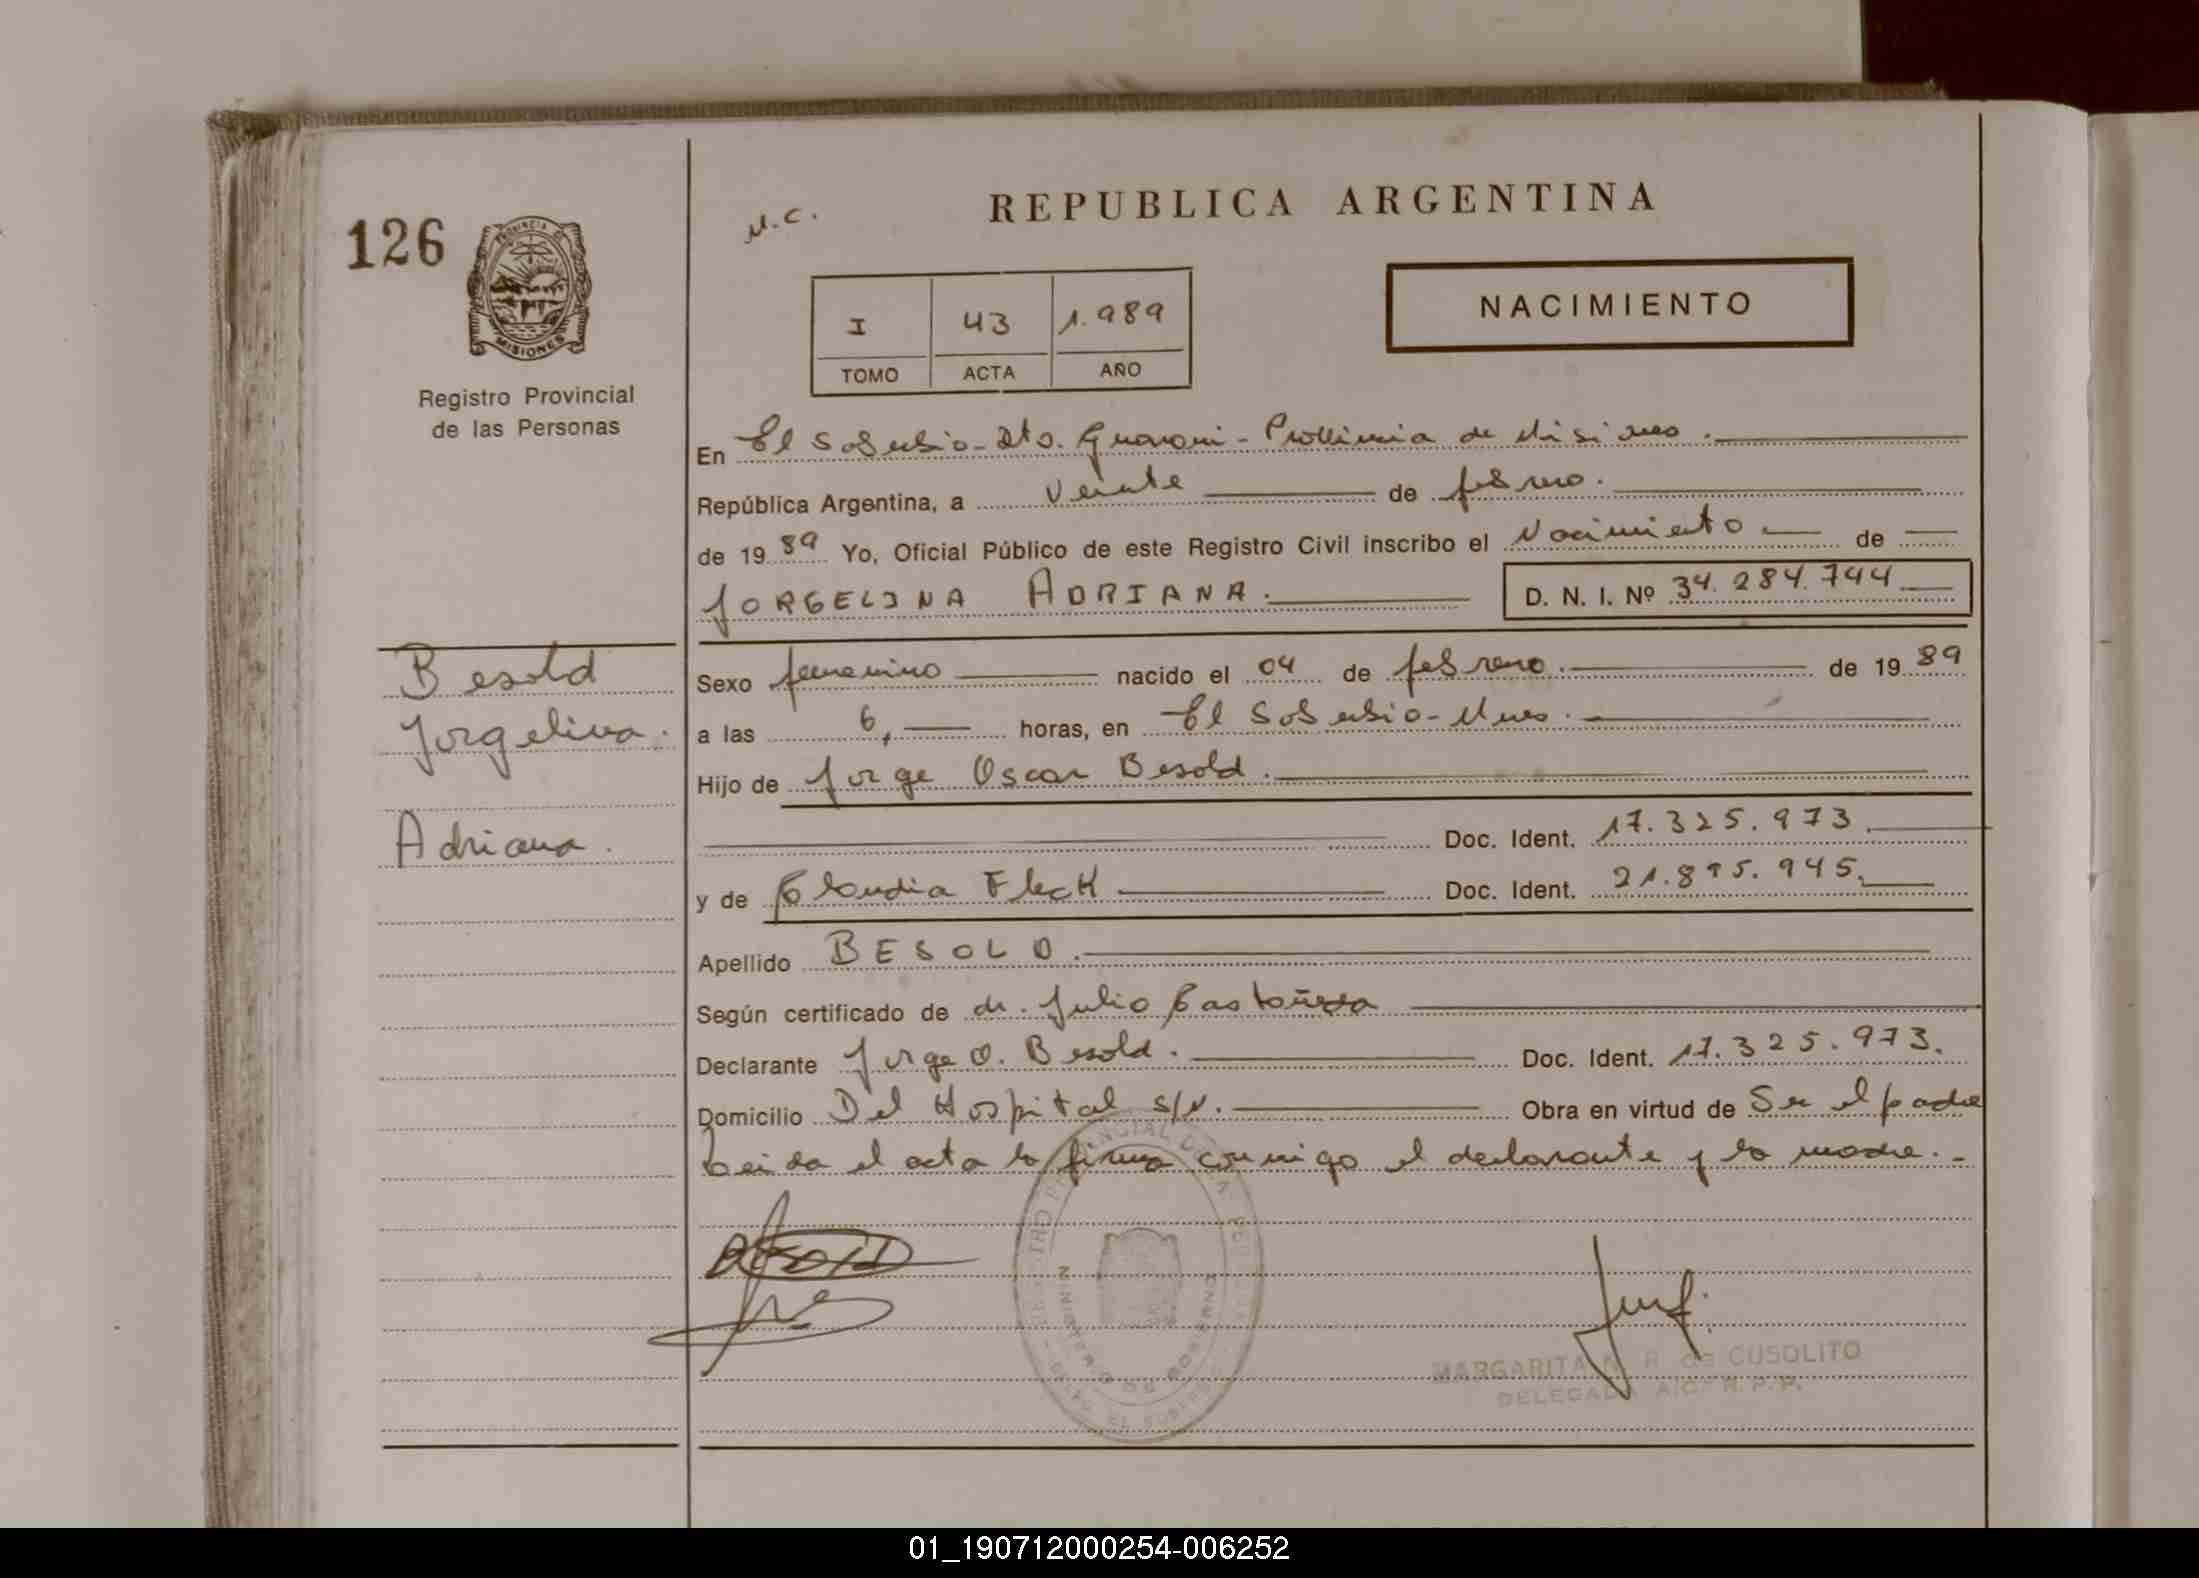 126
PROVINCIA DE
MISIONES
Registro Provincial
de las Personas
N.C.
REPUBLICA ARGENTINA
I 43 1.989
TOMO ACTA AÑO
NACIMIENTO
En El Soberbio - Dto. Guarani - Provincia de Misiones.
República Argentina, a veinte de febrero.
de 1989 Yo, Oficial Público de este Registro Civil inscribo el Nacimiento de
JORGELINA ADRIANA. D. N. I. Nº 34.284.744
Besold
Jorgelina.
Adriana.
Sexo femenino nacido el 04 de febrero. de 1989
a las 6, horas, en El Soberbio - Mnes.
Hijo de Jorge Oscar Besold.
Doc. Ident. 17.325.973.
y de Claudia Fleck Doc. Ident. 21.895.945.
Apellido BESOLD.
Según certificado de dr. Julio Castañeda
Declarante Jorge O. Besold. Doc. Ident. 17.325.973.
Domicilio Del Hospital s/n. Obra en virtud de Ser el padre
Leida el acta la firma conmigo el declarante y la madre.-
REGISTRO PROVINCIAL DE LAS PERSONAS
MINISTERIO DE GOBIERNO
EL SOBERBIO
MARGARITA N. R. de CUSOLITO
DELEGADA A/C R.P.P.
01_190712000254-006252